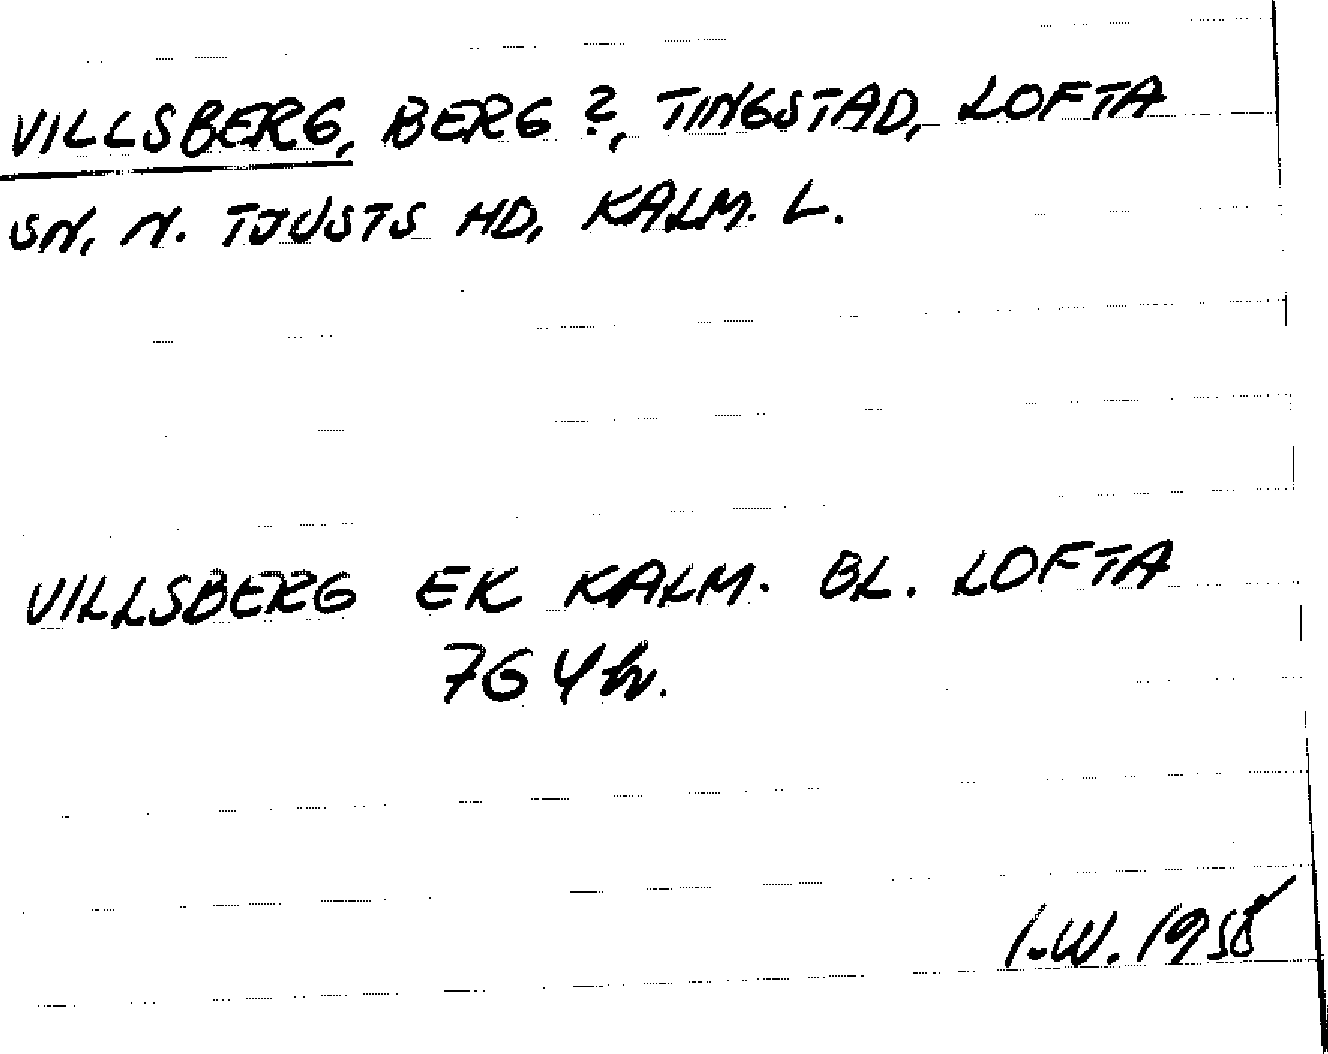 VILLSBERG, BERG ?, TINGSTAD, LOFTA
SN, N. TJUSTS HD, KALM. L.
VILLSBERG EK KALM. BL. LOFTA
7G 4h.
I.W. 1958